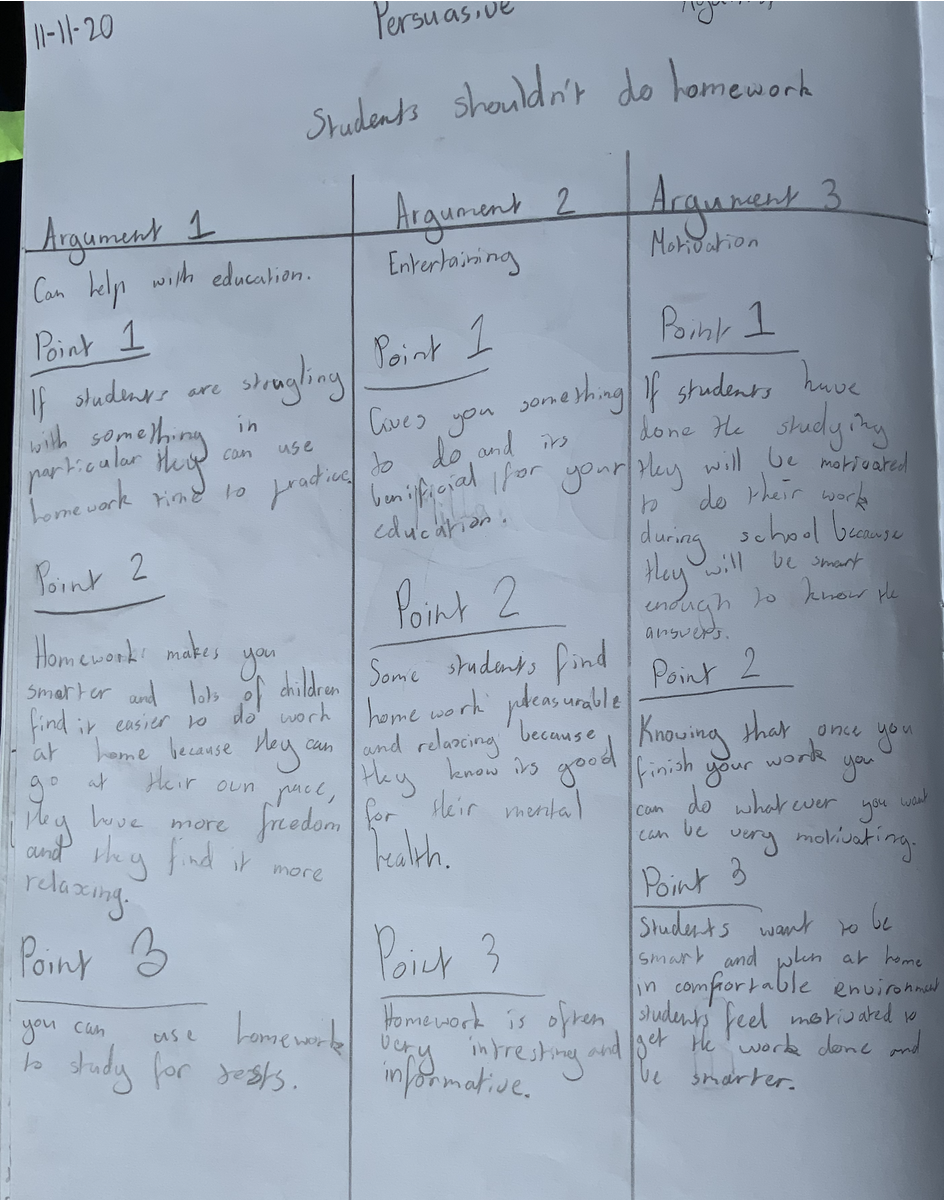 11-11-20
Persuasive
Students shouldn't do homework
Argument 1
Can help with education.
Point 1
If students are strugling
with something in
particular they can use
homework time to practice.
Point 2
Homework makes you
smarter and lots of children
find it easier to do work
at home because they can
go at their own pace,
they have more freedom
and they find it more
relaxing.
Point 3
you can use homework
to study for tests.
Argument 2
Entertaining
Point 1
Gives you something
to do and its
benificial for your
education.
Point 2
Some students find
homework pleasurable
and relaxing because
they know its good
for their mental
health.
Point 3
Homework is often
very intresting and
informative.
Argument 3
Motivation
Point 1
If students have
done the studying
they will be motivated
to do their work
during school because
they will be smart
enough to know the
answers.
Point 2
Knowing that once you
finish your work you
can do whatever you want
can be very motivating.
Point 3
Students want to be
smart and when at home
in comfortable environment
students feel motivated to
get the work done and
be smarter.